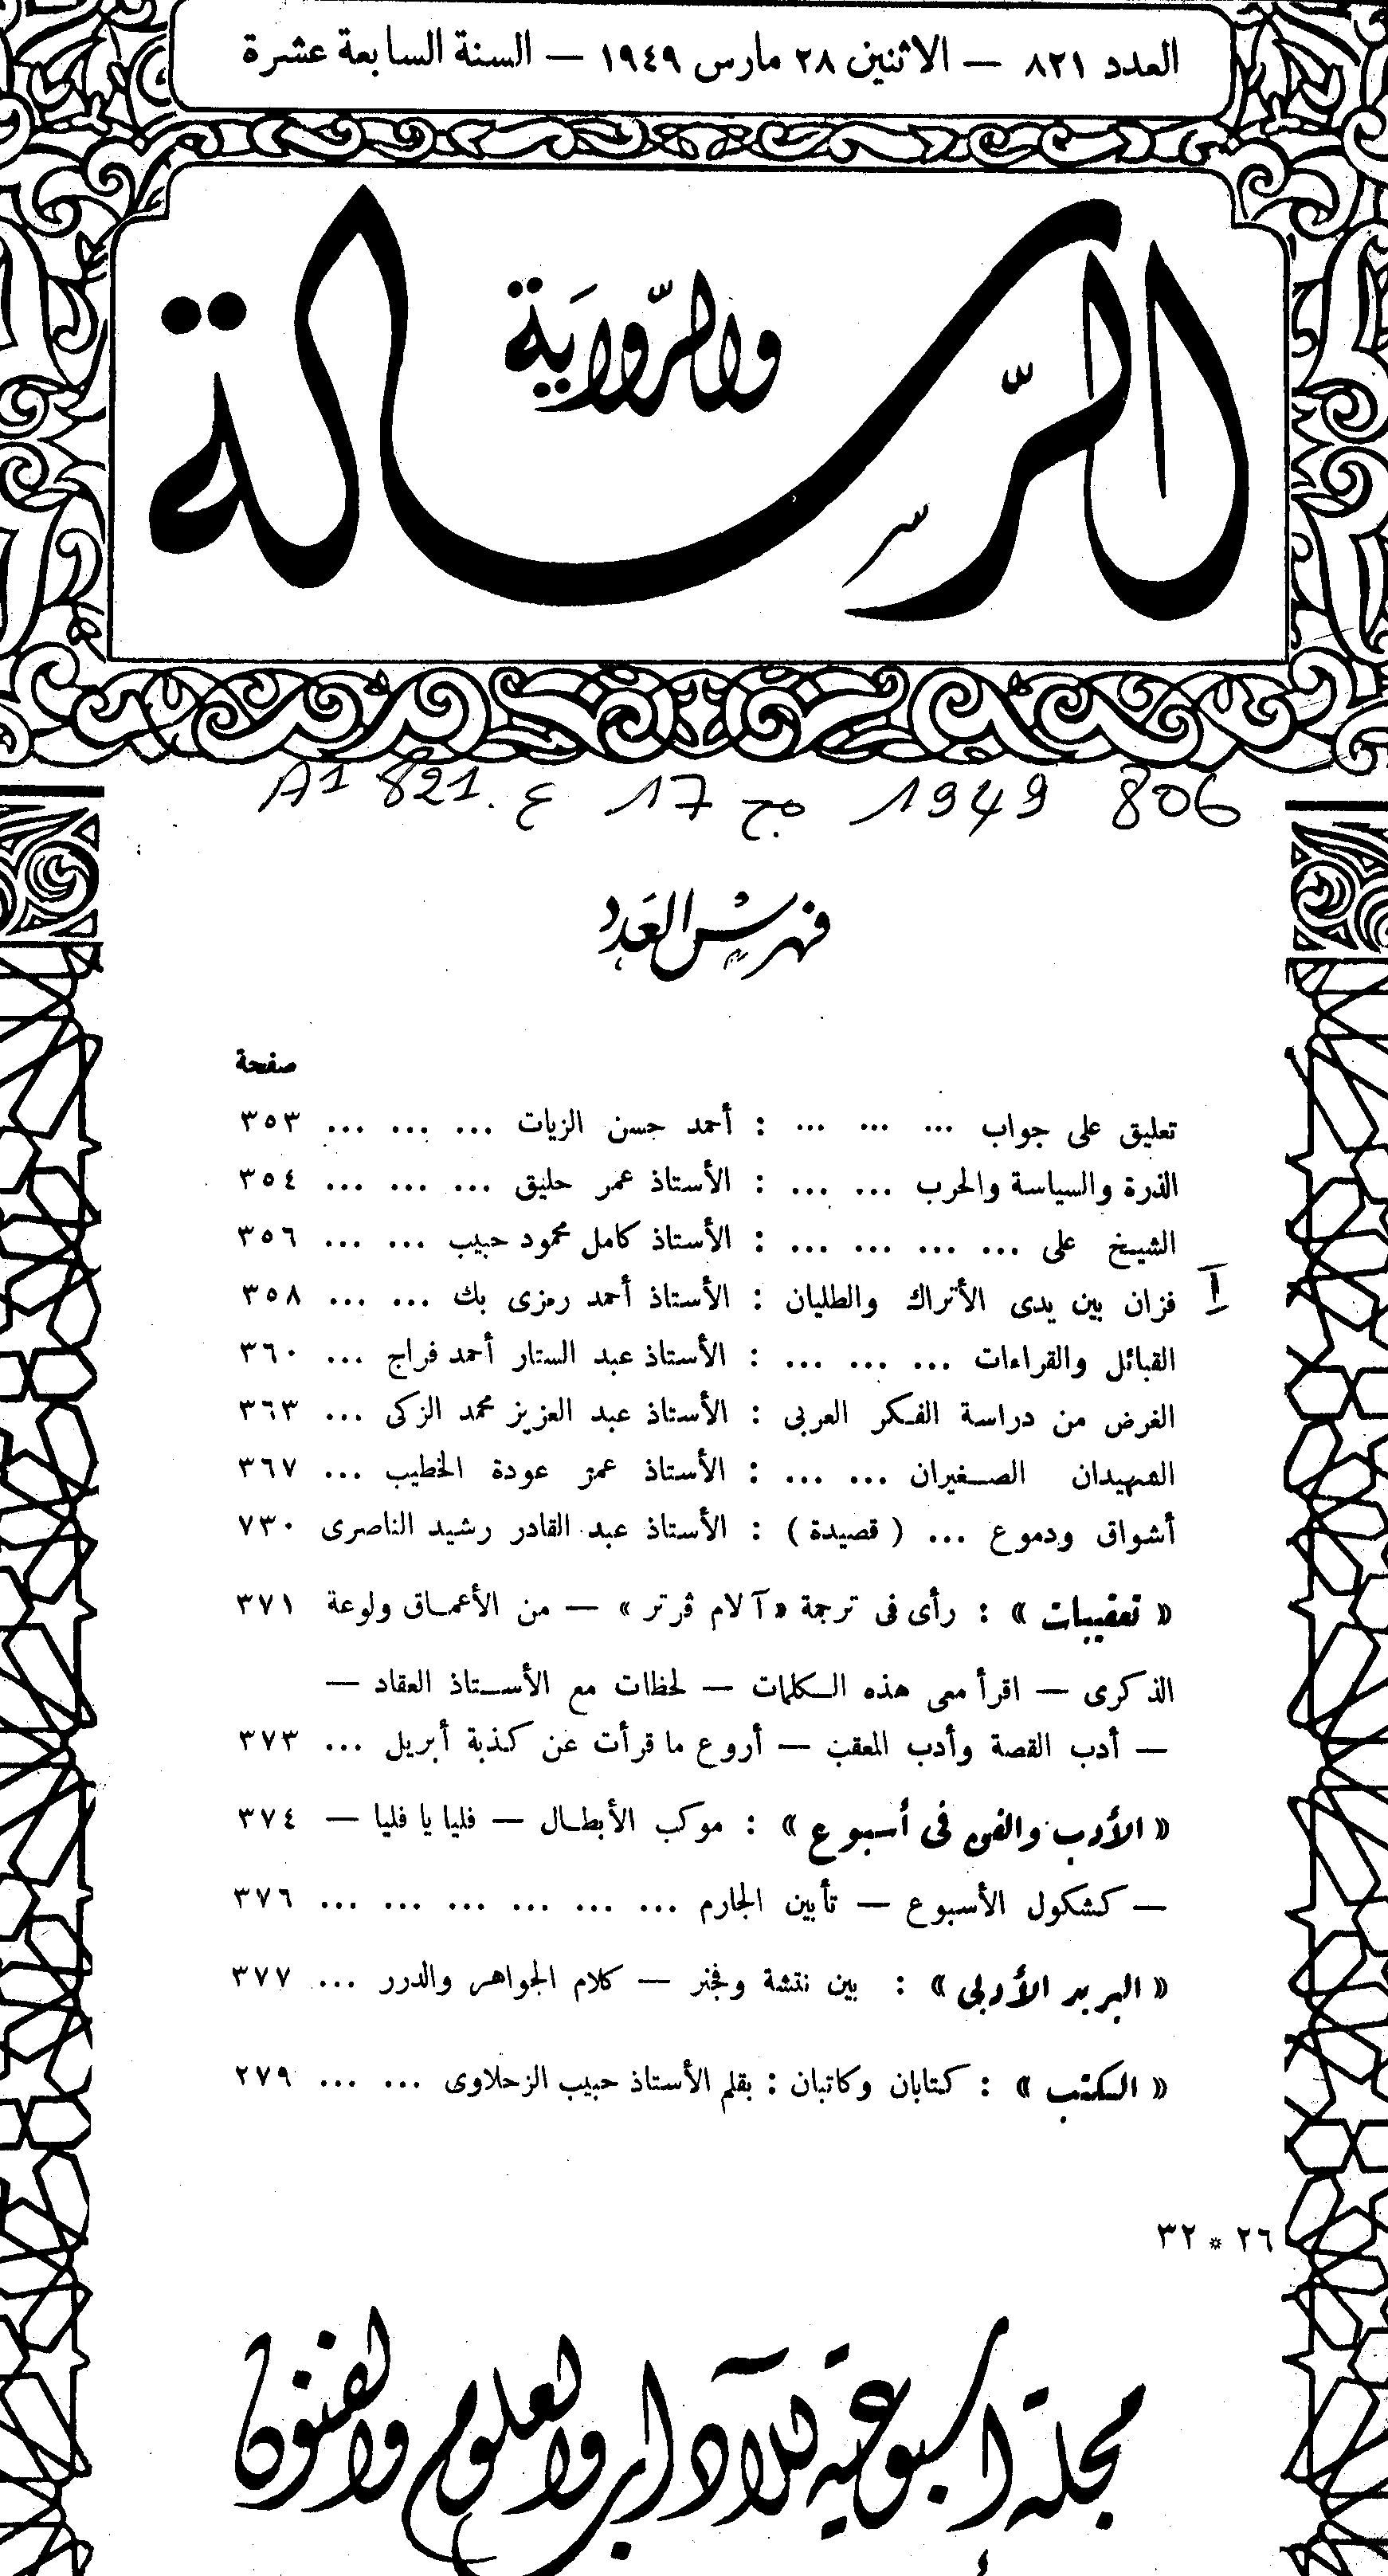 العدد ٨٢١ — الاثنين ٢٨ مارس ١٩٤٩ — السنة السابعة عشرة
الرسالة
والرّواية
806 1949 مج 17 ع 821. A1
فهرس العدد
صفحة
تعليق على جواب ... ... ... : أحمد حسن الزيات ... ... ... ٣٥٣
الذرة والسياسة والحرب ... ... : الأستاذ عمر حليق ... ... ... ٣٥٤
الشيخ على ... ... ... ... : الأستاذ كامل محمود حبيب ... ... ٣٥٦
I فزان بين يدى الأتراك والطليان : الأستاذ أحمد رمزى بك ... ... ٣٥٨
القبائل والقراءات ... ... ... : الأستاذ عبد الستار أحمد فراج ... ٣٦٠
الغرض من دراسة الفكر العربى : الأستاذ عبد العزيز محمد الزكى ... ٣٦٣
الشهيدان الصغيران ... ... : الأستاذ عمر عودة الخطيب ... ٣٦٧
أشواق ودموع ... ( قصيدة ) : الأستاذ عبد القادر رشيد الناصرى ٧٣٠
« تعقيبات » : رأى فى ترجمة «آلام ڤرتر » — من الأعماق ولوعة ٣٧١
الذكرى — اقرأ معى هذه الكلمات — لحظات مع الأستاذ العقاد —
— أدب القصة وأدب المعقب — أروع ما قرأت عن كذبة أبريل ... ٣٧٣
« الأدب والفن فى أسبوع » : موكب الأبطال — فليا يا فليا — ٣٧٤
— كشكول الأسبوع — تأبين الجارم ... ... ... ... ... ... ٣٧٦
« البريد الأدبى » : بين نتشة وفجنر — كلام الجواهر والدرر ... ٣٧٧
« الكتب » : كتابان وكاتبان : بقلم الأستاذ حبيب الزحلاوى ... ... ٢٧٩
٢٦ * ٣٢
مجلة أسبوعية للآداب والعلوم والفنون